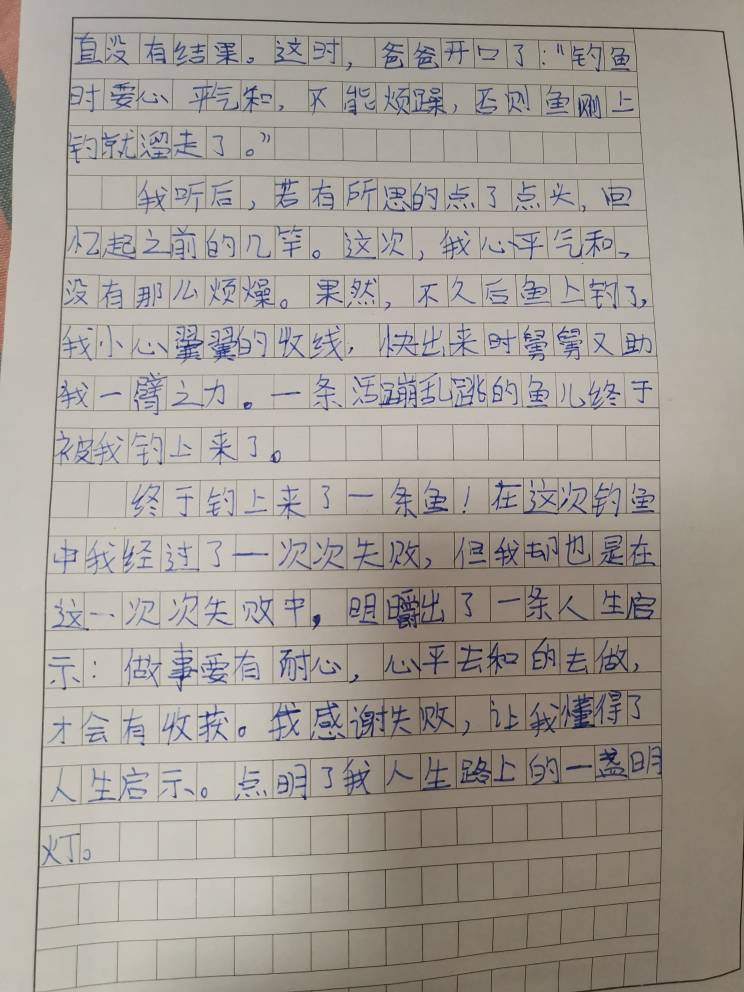 直没有结果。这时，爸爸开口了：“钓鱼
时要心平气和，不能烦躁，否则鱼刚上
钓就溜走了。”
我听后，若有所思的点了点头，回
忆起之前的几竿。这次，我心平气和、
没有那么烦燥。果然，不久后鱼上钓了，
我小心翼翼的收线，快出来时舅舅又助
我一臂之力。一条活蹦乱跳的鱼儿终于
被我钓上来了。
终于钓上来了一条鱼！在这次钓鱼
中我经过了一次次失败，但我却也是在
这一次次失败中，明嚼出了一条人生启
示：做事要有耐心，心平去和的去做，
才会有收获。我感谢失败，让我懂得了
人生启示。点明了我人生路上的一盏明
灯。